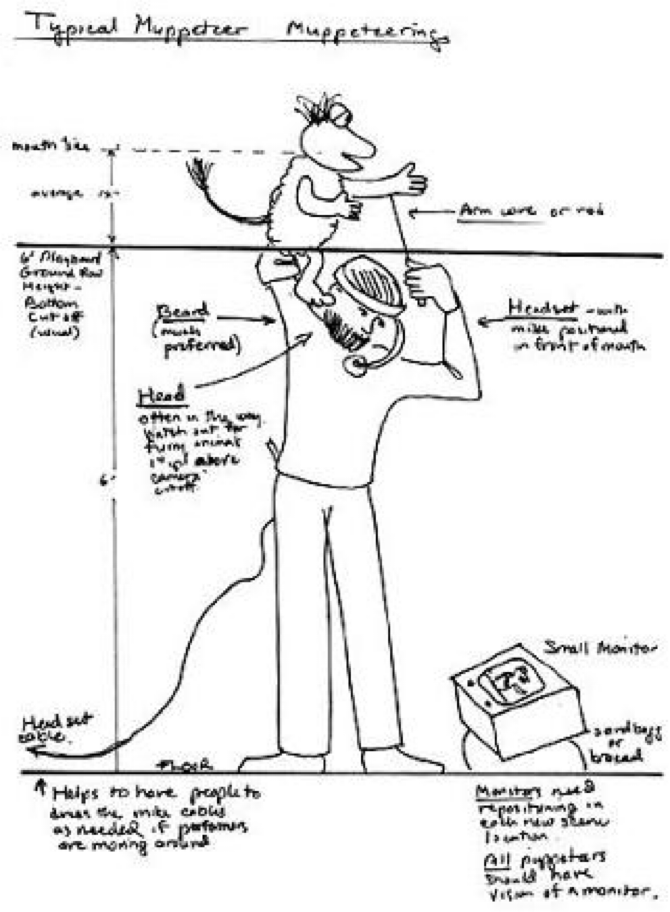 Typical Muppeteer Muppeteerings
mouth line
average 12"
Arm wire or rod
6' Playboard
Ground Row
Height -
Bottom
Cut off
(usual)
Beard
(much
preferred)
Headset - with
mike positioned
in front of mouth
Head
often in the way.
Watch out for
furry animal
above
camera
cutoff.
6'
Small Monitor
Head set
cable.
FLOOR
sandbags
or
↑ Helps to have people to
dress the mike cables
as needed if performers
are moving around
Monitors need
repositioning in
each new scene
location.
All puppeteers
should have
vision of a monitor.